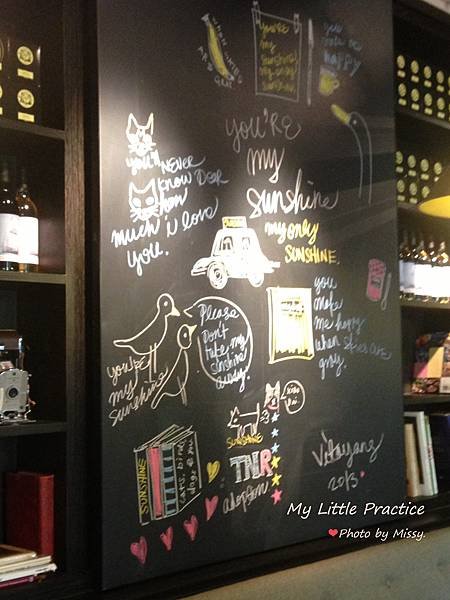 WHEN
YOU'RE
my
SUNSHINE
my only
SUNSHINE
YOU
make me
happy
YOU'RE
my
Sunshine
my only
SUNSHINE.
YOU'll
NEVER
KNOW DEAR
HOW
much I LOVE
YOU.
you
make
me happy
when skies are
gray.
Please
Don't
take my
sunshine
away.
you're
my
sunshine
SUNSHINE
TNR
adoption
SUNSHINE
cats, birds,
dogs & me
Vitayang
2013
My Little Practice
❤Photo by Missy.